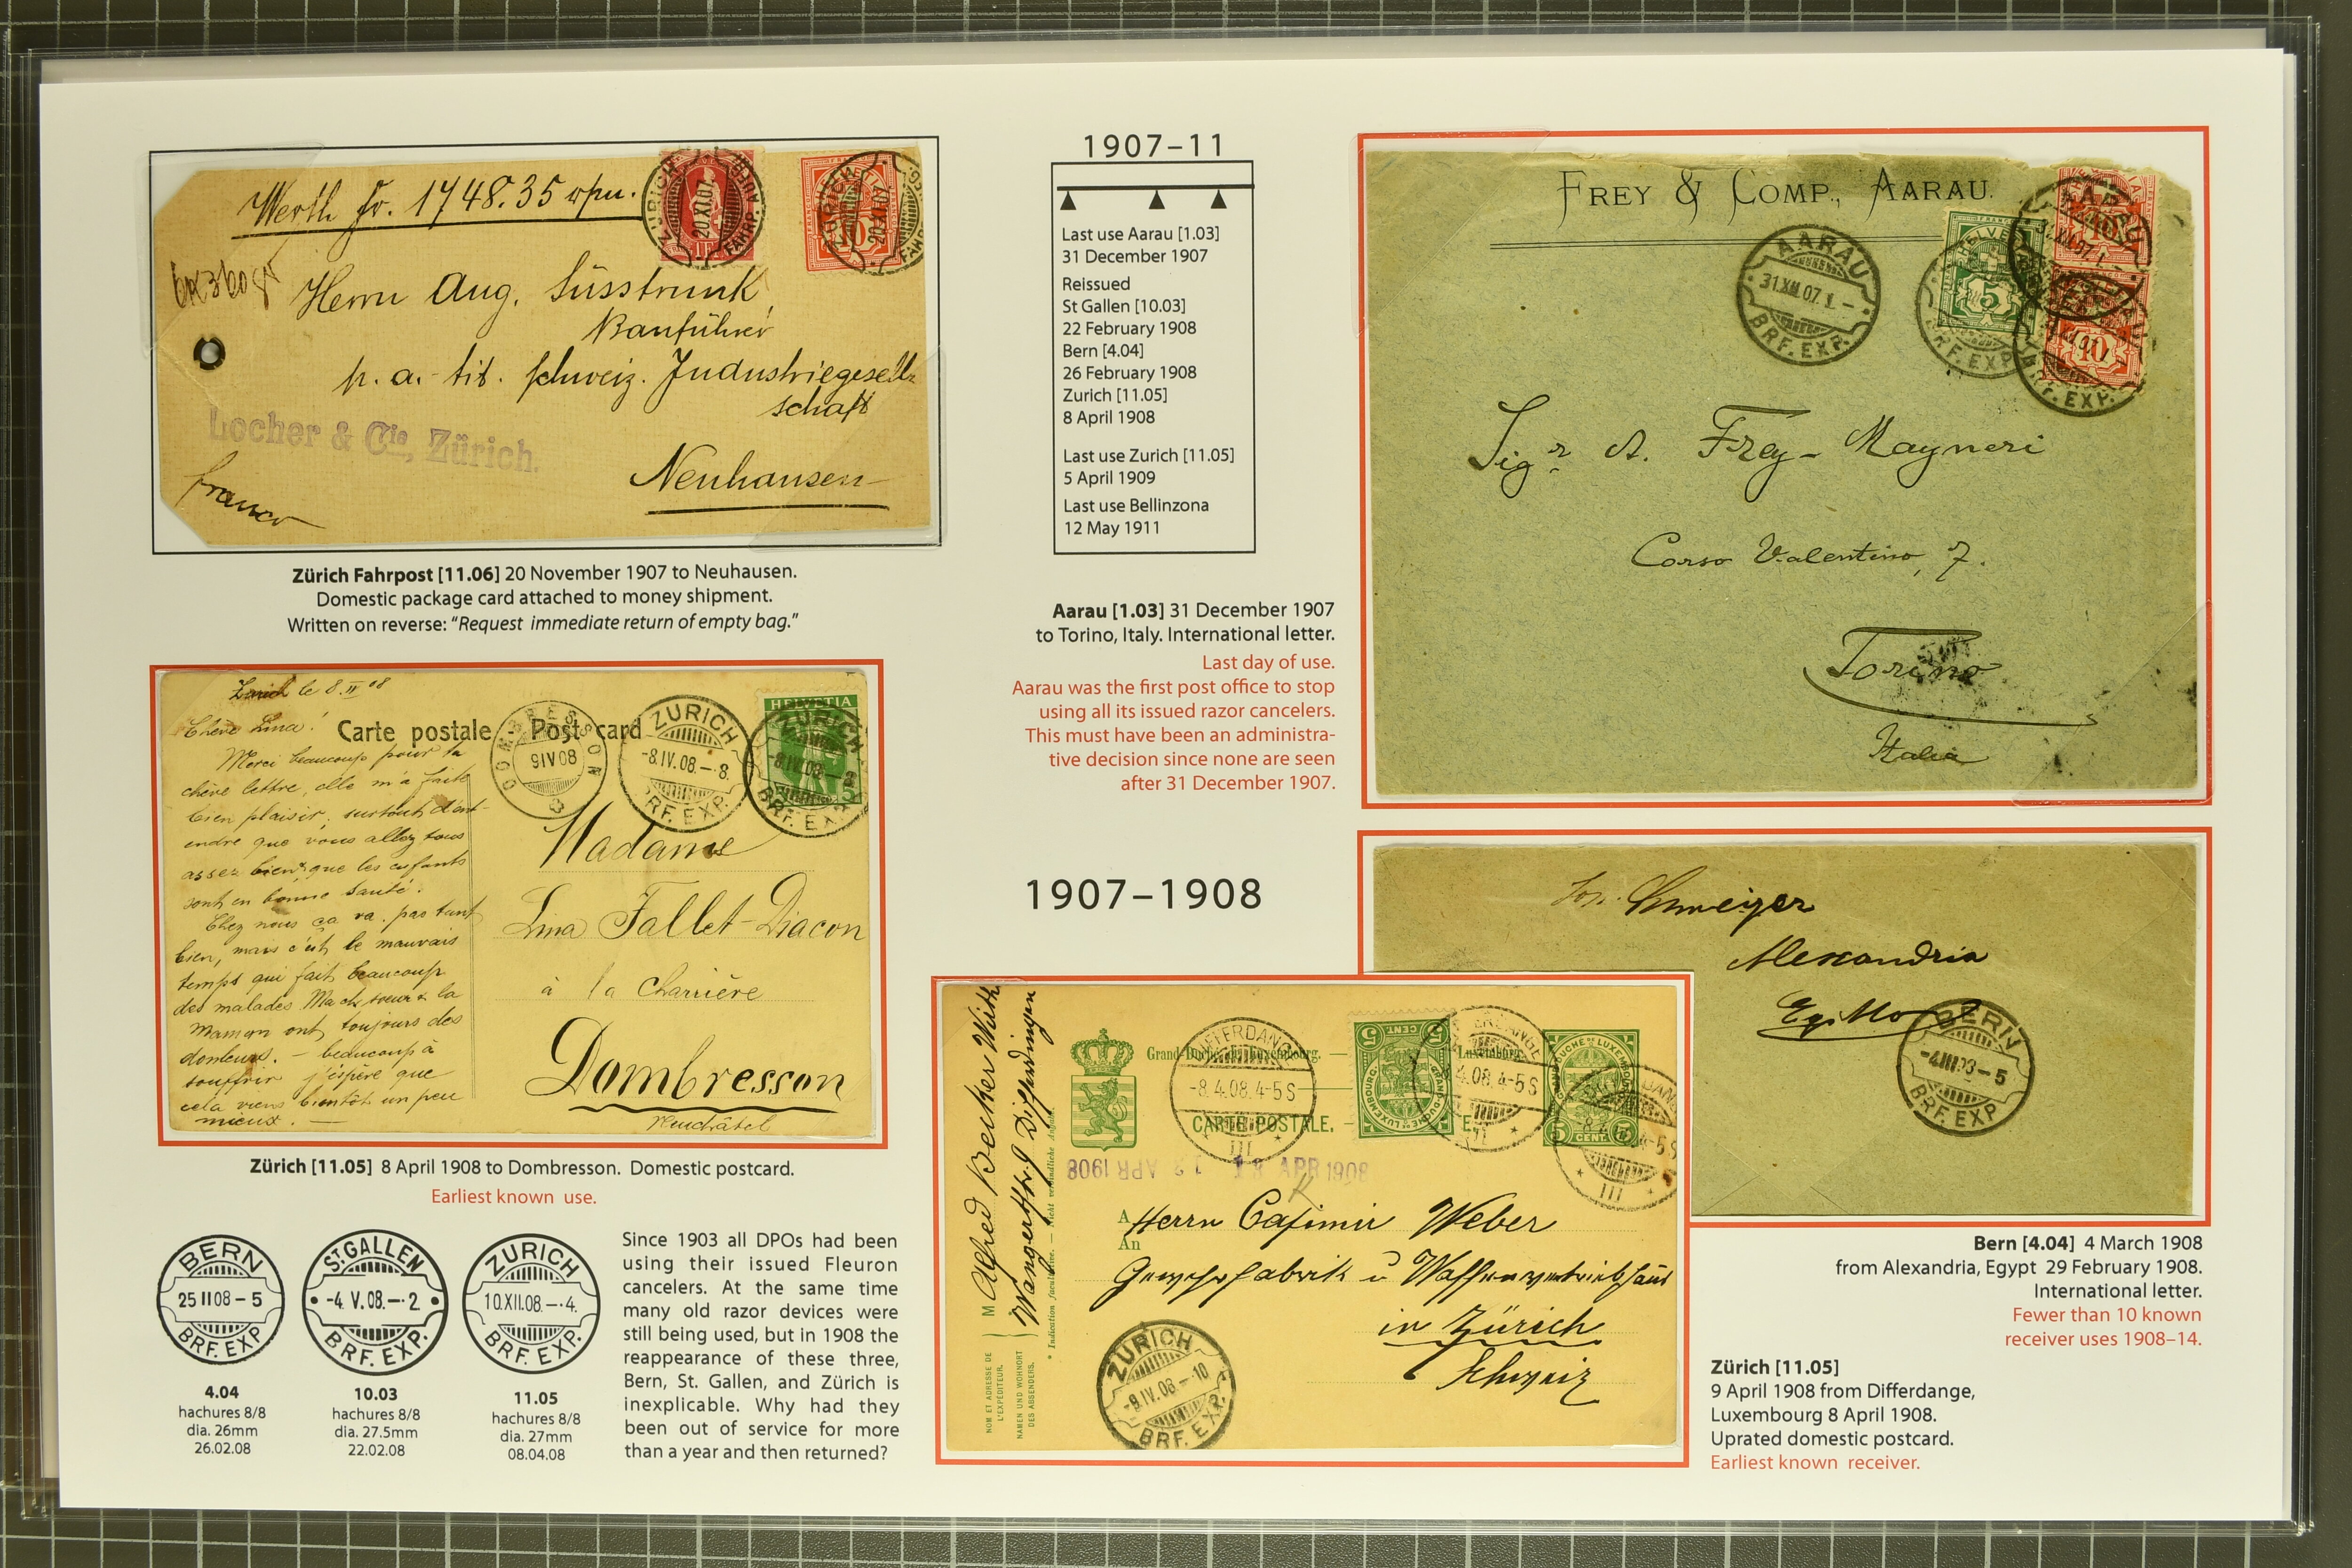 Werth fr. 1748.35
ZÜRICH
20.XI.07
FAHRP. AUFG.
20.XI.07
Herrn Aug. Süsstrunk
Bauführer
p. a. tit. schweiz. Industriegesell-
schaft
Neuhausen
Locher & Cie, Zürich.
franco
Zürich Fahrpost [11.06] 20 November 1907 to Neuhausen.
Domestic package card attached to money shipment.
Written on reverse: “Request immediate return of empty bag.”
1907–11
Last use Aarau [1.03]
31 December 1907
Reissued
St Gallen [10.03]
22 February 1908
Bern [4.04]
26 February 1908
Zurich [11.05]
8 April 1908
Last use Zurich [11.05]
5 April 1909
Last use Bellinzona
12 May 1911
FREY & COMP., AARAU.
AARAU
31.XII.07.1.–
BRF. EXP.
5
10
10
Sigr A. Frey-Mayneri
Corso Valentino, 7.
Torino
Italia
Aarau [1.03] 31 December 1907
to Torino, Italy. International letter.
Last day of use.
Aarau was the first post office to stop
using all its issued razor cancelers.
This must have been an administra-
tive decision since none are seen
after 31 December 1907.
Carte postale
Post card
DOMBRESSON
9IV08
ZURICH
-8.IV.08.–·8.
BRF. EXP.
HELVETIA
Chère Lina!
Merci beaucoup pour ta
chère lettre, elle m'a faite
bien plaisir, surtout d'ent-
endre que vous allez tous
assez bien & que les enfants
sont en bonne santé.
Chez nous ça va pas tant
bien, mais c'est le mauvais
temps qui fait beaucoup
des malades
Maman ont toujours des
douleurs. – beaucoup à
souffrir j'espère que
cela viens bientôt un peu
mieux. –
Madame
Lina Fallet-Diacon
à la Charrière
Dombresson
Neuchâtel
Zürich [11.05] 8 April 1908 to Dombresson. Domestic postcard.
Earliest known use.
1907–1908
Schweizer
Alexandria
Egitto
BERN
-4III08–5
BRF. EXP.
Bern [4.04] 4 March 1908
from Alexandria, Egypt 29 February 1908.
International letter.
Fewer than 10 known
receiver uses 1908–14.
Grand-Duché de Luxembourg. –
Luxemburg.
CARTE POSTALE.
DIFFERDANGE
-8.4.08.4-5S
III
5 CENT. 5
12 APR 1908
13 APR 1908
A
An
Herrn Casimir Weber
Gewehrfabrik u Waffenvertriebhaus
in Zürich
Schweiz
Alfred Becker
Differdingen
NOM ET ADRESSE DE
L'EXPÉDITEUR.
NAMEN UND WOHNORT
DES ABSENDERS.
* Indication facultative. – Nicht verbindliche Angabe.
ZURICH
-9.IV.08–10
BRF. EXP.
Zürich [11.05]
9 April 1908 from Differdange,
Luxembourg 8 April 1908.
Uprated domestic postcard.
Earliest known receiver.
BERN
25 II 08–5
BRF. EXP
4.04
hachures 8/8
dia. 26mm
26.02.08
ST. GALLEN
-4. V. 08.–·2
BRF. EXP.
10.03
hachures 8/8
dia. 27.5mm
22.02.08
ZURICH
10.XII.08.–·4.
BRF. EXP.
11.05
hachures 8/8
dia. 27mm
08.04.08
Since 1903 all DPOs had been
using their issued Fleuron
cancelers. At the same time
many old razor devices were
still being used, but in 1908 the
reappearance of these three,
Bern, St. Gallen, and Zürich is
inexplicable. Why had they
been out of service for more
than a year and then returned?